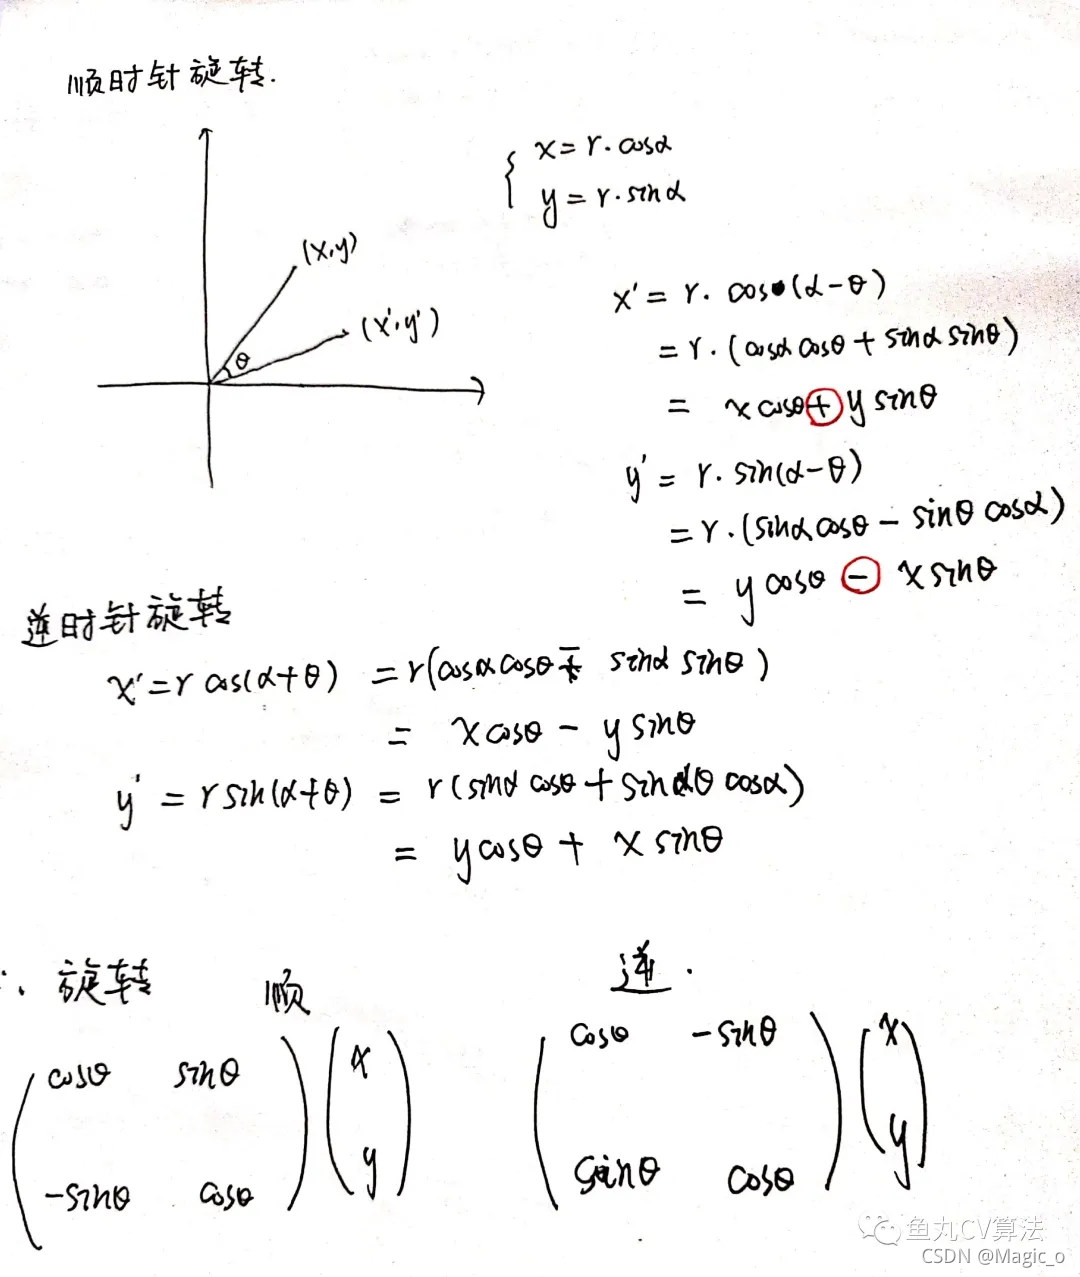 顺时针旋转.
x = r · cosα
y = r · sinα
(x,y)
(x',y')
θ
x' = r · cos(α-θ)
= r · (cosα cosθ + sinα sinθ)
= x cosθ + y sinθ
y' = r · sin(α-θ)
= r · (sinα cosθ - sinθ cosα)
= y cosθ - x sinθ
逆时针旋转
x' = r cos(α+θ) = r(cosα cosθ - sinα sinθ)
= x cosθ - y sinθ
y' = r sin(α+θ) = r(sinα cosθ + sinθ cosα)
= y cosθ + x sinθ
∴ 旋转 顺 逆.
cosθ sinθ x cosθ -sinθ x
-sinθ cosθ y sinθ cosθ y
鱼丸CV算法
CSDN @Magic_o